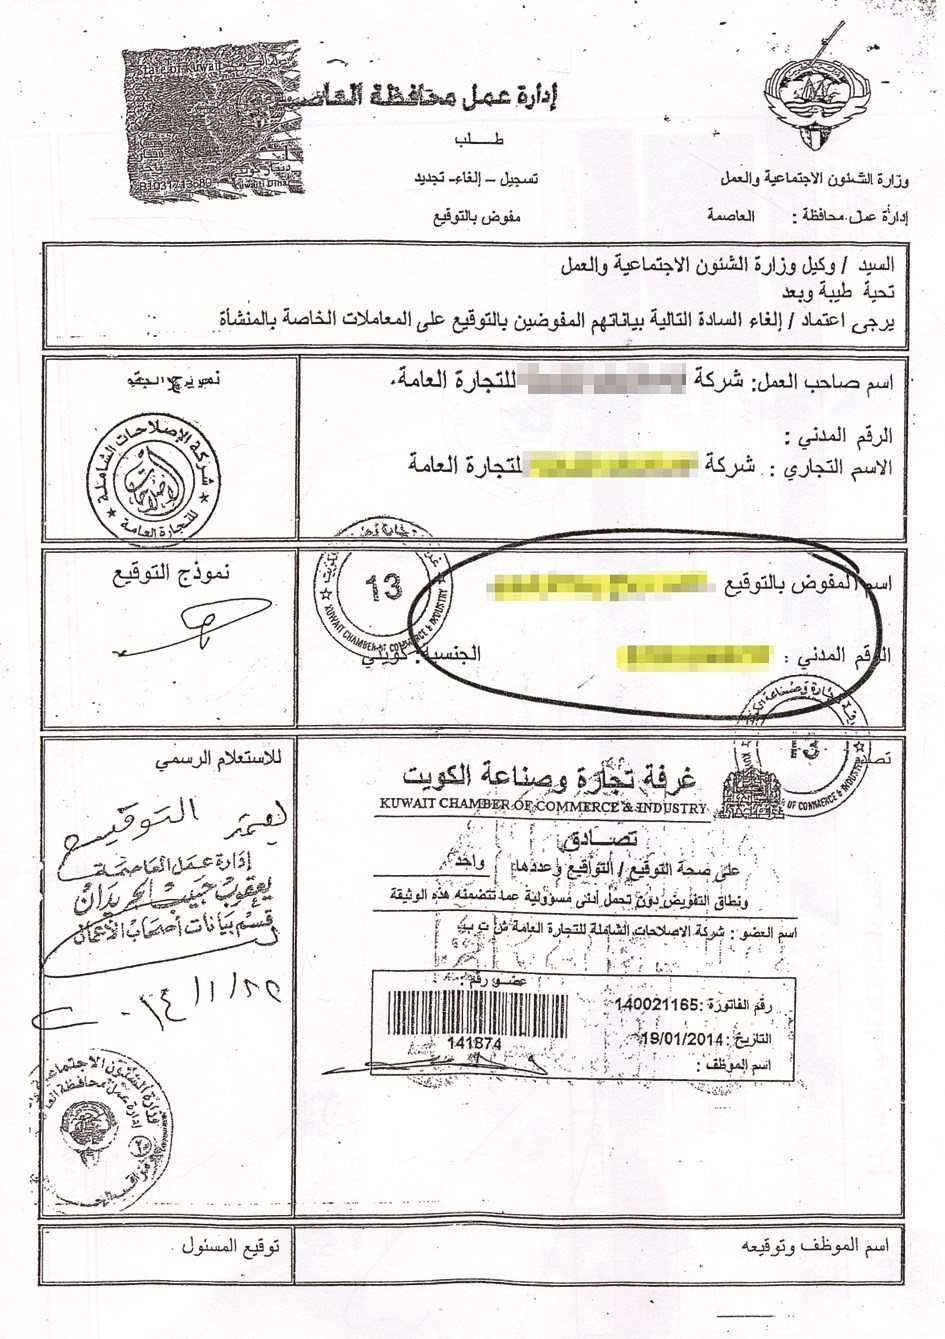 State of Kuwait
إدارة عمل محافظة
طلب
تسجيل – إلغاء- تجديد
مفوض بالتوقيع
وزارة الشئون الاجتماعية والعمل
إدارة عمل محافظة : العاصمة
السيد / وكيل وزارة الشئون الاجتماعية والعمل
تحية طيبة وبعد
يرجى اعتماد / إلغاء السادة التالية بياناتهم المفوضين بالتوقيع على المعاملات الخاصة بالمنشأة
اسم صاحب العمل: شركة للتجارة العامة.
الرقم المدني :
الاسم التجاري : شركة للتجارة العامة
نموذج
شركة الإصلاحات الشاملة
الإصلاحات
للتجارة العامة
اسم المفوض بالتوقيع
الرقم المدني :
الجنسية: كويتي
13
KUWAIT CHAMBER OF COMMERCE & INDUSTRY
نموذج التوقيع
OF COMMERCE & INDUSTRY
غرفة تجارة وصناعة الكويت
KUWAIT CHAMBER OF COMMERCE & INDUSTRY
تصادق
على صحة التوقيع / التواقيع وعددها: واحد
ونطاق التفويض دون تحمل أدنى مسؤولية عما تتضمنه هذه الوثيقة
اسم العضو : شركة الاصلاحات الشاملة للتجارة العامة
عضو رقم :
141874
رقم الفاتورة :140021165
التاريخ : 19/01/2014
اسم الموظف :
للاستعلام الرسمي
يعتمد التوقيع
إدارة عمل العاصمة
قسم بيانات أصحاب الأعمال
اسم الموظف وتوقيعه
توقيع المسئول